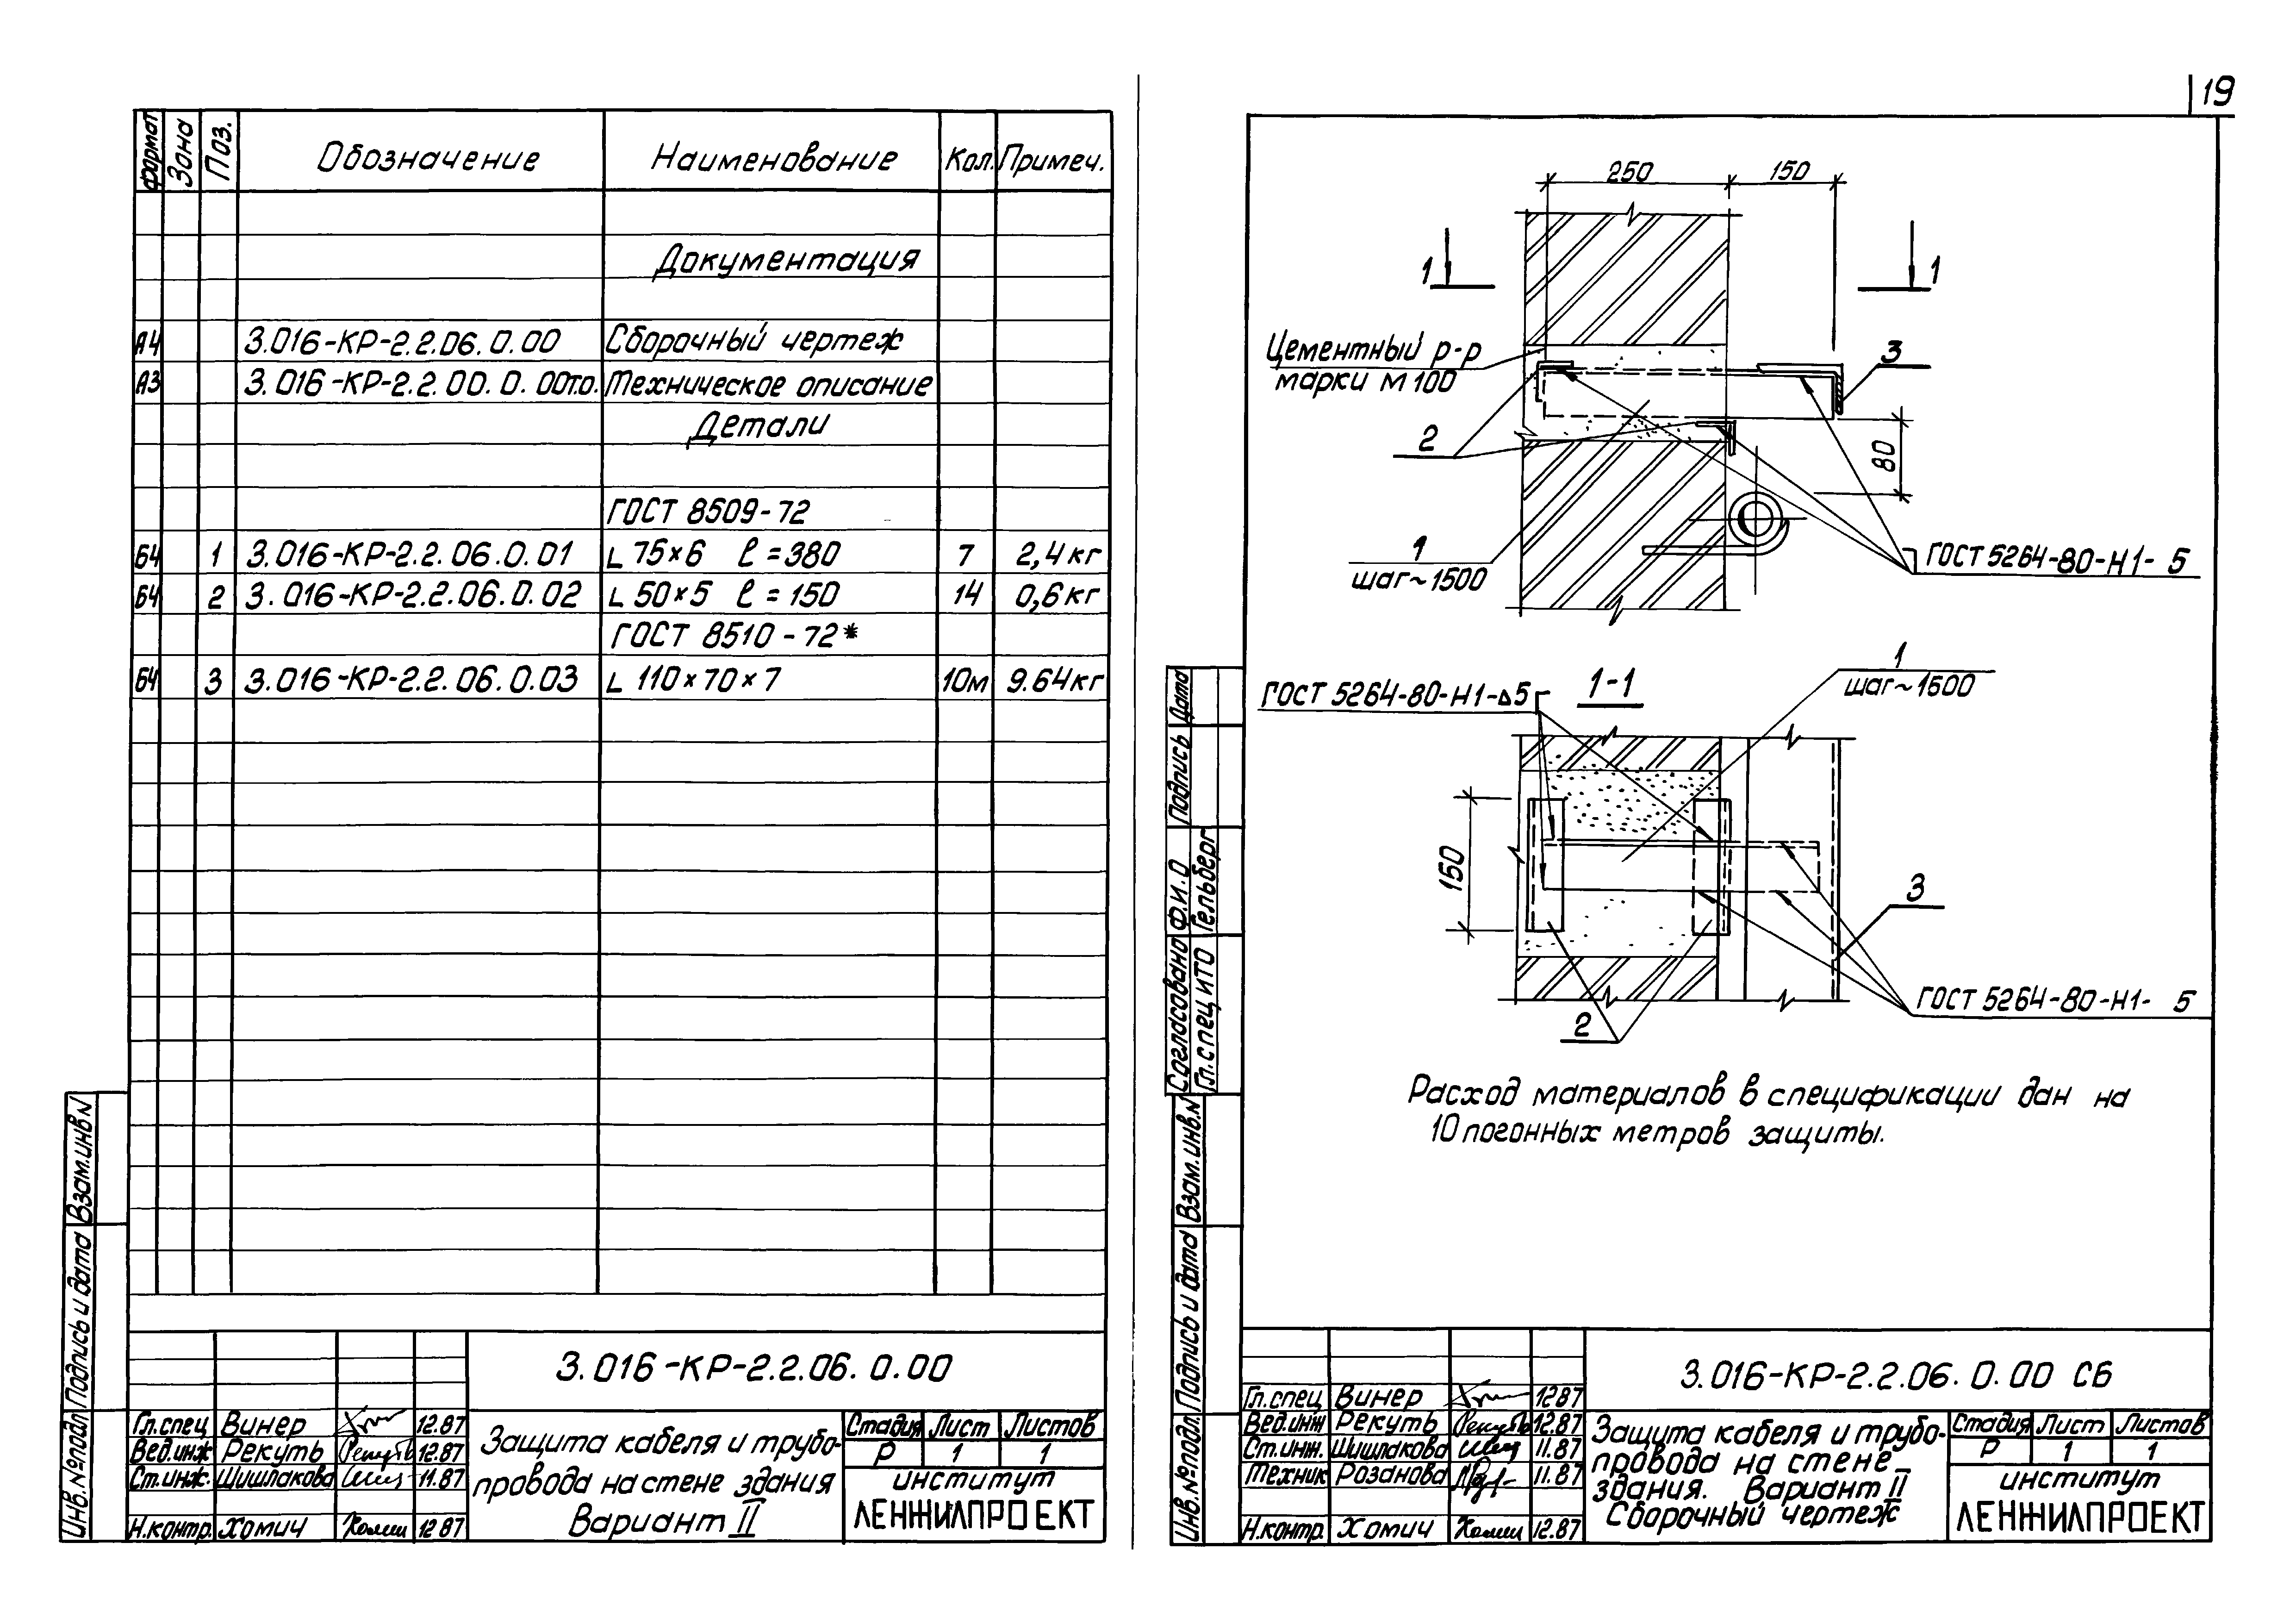 19
Формат Зона Поз. Обозначение Наименование Кол. Примеч.
Документация
А4 3.016-КР-2.2.06.0.00 Сборочный чертеж
А3 3.016-КР-2.2.00.0.00т.о. Техническое описание
Детали
ГОСТ 8509-72
Б4 1 3.016-КР-2.2.06.0.01 L 75×6 ℓ=380 7 2,4кг
Б4 2 3.016-КР-2.2.06.0.02 L 50×5 ℓ=150 14 0,6кг
ГОСТ 8510-72*
Б4 3 3.016-КР-2.2.06.0.03 L 110×70×7 10м 9.64кг
Взам.инв.N
Подпись и дата
Инв.№подл
3.016-КР-2.2.06.0.00
Гл.спец Винер 12.87
Вед.инж Рекуть 12.87
Ст.инж. Шишлакова 11.87
Н.контр. Хомич 12 87
Защита кабеля и трубо-
провода на стене здания
Вариант II
Стадия Лист Листов
Р 1 1
институт
ЛЕНЖИЛПРОЕКТ
250 150
1 1
Цементный р-р
марки М 100
3
2
80
1
шаг~1500
ГОСТ 5264-80-Н1- 5
1
шаг~1500
ГОСТ 5264-80-Н1-Δ5
1-1
150
3
ГОСТ 5264-80-Н1- 5
2
Расход материалов в спецификации дан на
10 погонных метров защиты.
Дата
Подпись
Ф.И.О Гельберг
Согласовано Гл.спец ИТО
Взам.инв.N
Подпись и дата
Инв.№подл.
3.016-КР-2.2.06.0.00 СБ
Гл.спец Винер 1287
Вед.инж Рекуть 12.87
Ст.инж. Шишлакова 11.87
Техник Розанова 11.87
Н.контр. Хомич 12.87
Защита кабеля и трубо-
провода на стене
здания. Вариант II
Сборочный чертеж
Стадия Лист Листов
Р 1 1
институт
ЛЕНЖИЛПРОЕКТ